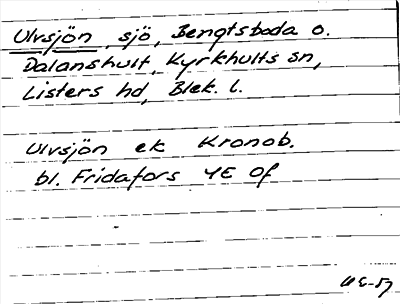 Ulvsjön, sjö, Bengtsboda o.
Dalanshult, Kyrkhults sn,
Listers hd, Blek. l.
Ulvsjön ek Kronob.
bl. Fridafors 4E 0f